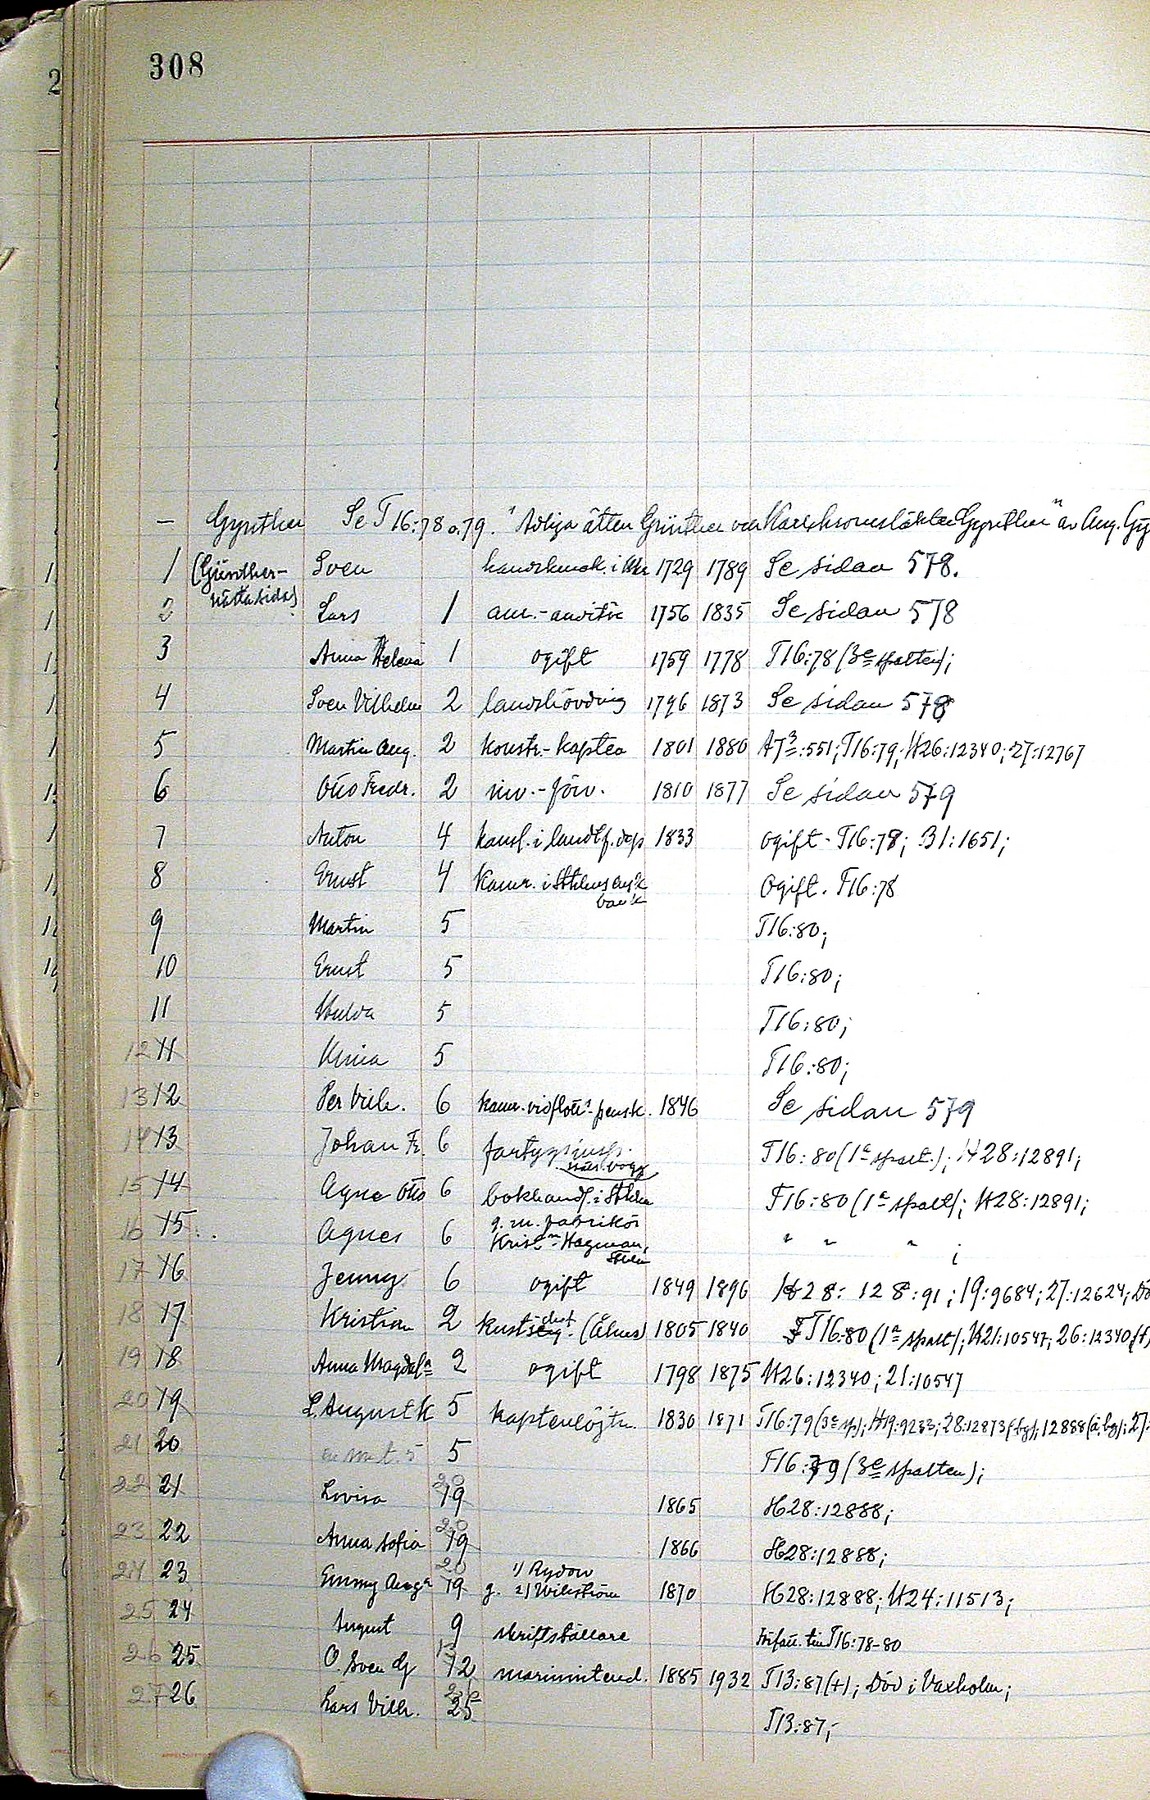 308
— Gynther Se T16:78 o. 79. "Adliga ätten Günther von Karlskronasläkten Gynther" av Aug. Gy
1 (Günther- Sven handelsm. i 1729 1789 Se sidan 578.
nästa sida)
2 Lars 1 am.- 1756 1835 Se sidan 578
3 Anna Helena 1 ogift 1759 1778 T16:78 (3e spalten);
4 Sven Vilhelm 2 landshövding 1796 1873 Se sidan 578
5 Martin Aug. 2 konstr.-kapten 1801 1880 A7:3:551; T16:79; H26:12340; 27:12767
6 Otto Fredr. 2 inv.-förv. 1810 1877 Se sidan 579
7 Anton 4 kansl. i landtf. dep 1833 ogift - T16:78; 31:1651;
8 Ernst 4 Kamr. i Sthlms ensk. Ogift. T16:78
bank
9 Martin 5 T16:80;
10 Ernst 5 T16:80;
11 Hulda 5 T16:80;
12 11 5 T16:80;
13 12 Per Vilh. 6 kamr. vid flott:s pensk. 1846 Se sidan 579
14 13 Johan Fr. 6 fartygsinsp. T16:80 (1e spalt.); H28:12891;
15 14 Agne Otto 6 bokhandl. i Sthlm T16:80 (1e spalt); H28:12891;
g. m. fabrikör
16 15 Agnes 6 Kristn Hagman, " " " ;
Sthlm
17 16 Jenny 6 ogift 1849 1896 H28:128:91; 19:9684; 27:12624; Dö
18 17 Kristian 2 kustserg. (Åhus) 1805 1840 T16:80 (1a spalt); H21:10547; 26:12340 (f)
19 18 Anna Magdal:a 2 ogift 1798 1875 H26:12340; 21:10547
20 19 L. August K 5 kaptenlöjtn. 1830 1871 T16:79 (3e sp); H19:9283; 28:12873 (bg); 12888 (ä. bg); 27:
21 20 en son t. 5 5 T16:79 (3e spalten);
20
22 21 Lovisa 19 1865 H28:12888;
20
23 22 Anna Sofia 19 1866 H28:12888;
20 1) Rydow
24 23 Emmy Aug:a 19 g. 2) Wikström 1870 H28:12888; H24:11513;
25 24 August 9 skriftställare författ. till T16:78-80
13
26 25 O. Sven G 12 marinintend. 1885 1932 T13:87 (+); Död i Vaxholm;
26
27 26 Lars Vilh. 25 T13:87;